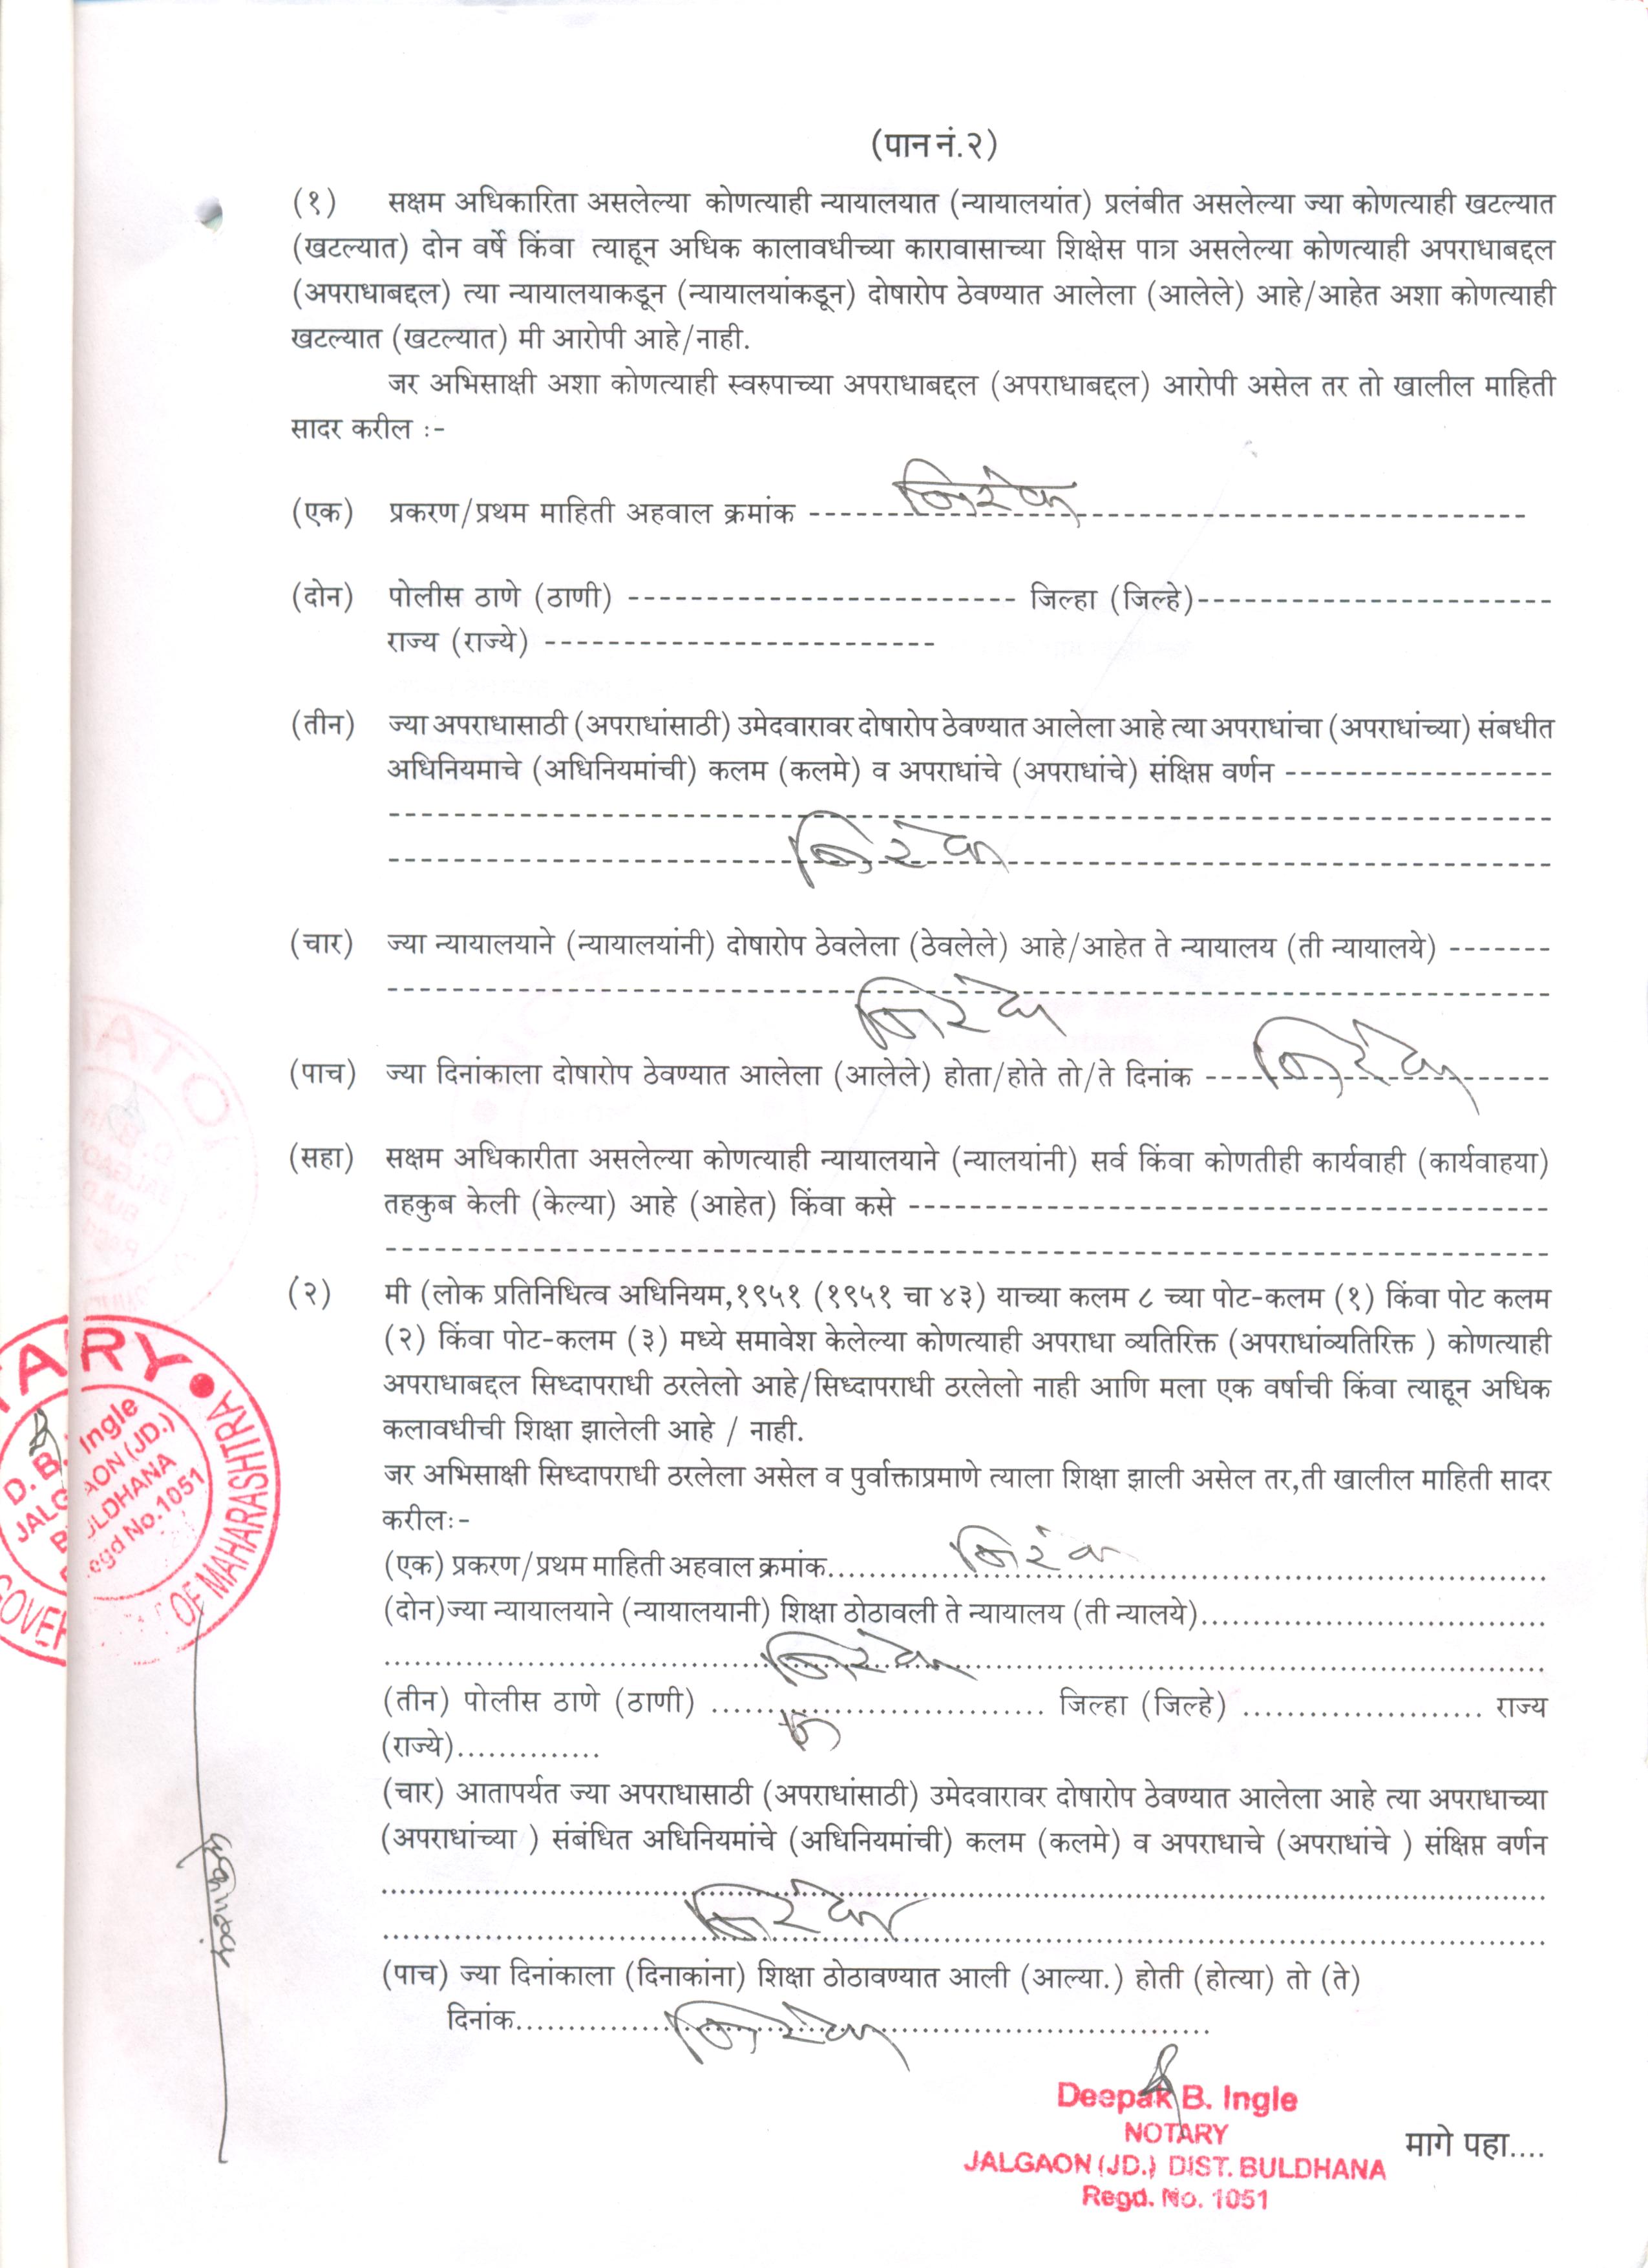 (पान नं.२)
(१) सक्षम अधिकारिता असलेल्या कोणत्याही न्यायालयात (न्यायालयांत) प्रलंबीत असलेल्या ज्या कोणत्याही खटल्यात
(खटल्यात) दोन वर्षे किंवा त्याहून अधिक कालावधीच्या कारावासाच्या शिक्षेस पात्र असलेल्या कोणत्याही अपराधाबद्दल
(अपराधाबद्दल) त्या न्यायालयाकडून (न्यायालयांकडून) दोषारोप ठेवण्यात आलेला (आलेले) आहे/आहेत अशा कोणत्याही
खटल्यात (खटल्यात) मी आरोपी आहे/नाही.
जर अभिसाक्षी अशा कोणत्याही स्वरुपाच्या अपराधाबद्दल (अपराधाबद्दल) आरोपी असेल तर तो खालील माहिती
सादर करील :-
(एक) प्रकरण/प्रथम माहिती अहवाल क्रमांक ------ निरंक ----------------------------
(दोन) पोलीस ठाणे (ठाणी) ------------------------- जिल्हा (जिल्हे)-----------------------
राज्य (राज्ये) -------------------------
(तीन) ज्या अपराधासाठी (अपराधांसाठी) उमेदवारावर दोषारोप ठेवण्यात आलेला आहे त्या अपराधांचा (अपराधांच्या) संबधीत
अधिनियमाचे (अधिनियमांची) कलम (कलमे) व अपराधांचे (अपराधांचे) संक्षिप्त वर्णन -----------------
निरंक
(चार) ज्या न्यायालयाने (न्यायालयांनी) दोषारोप ठेवलेला (ठेवलेले) आहे/आहेत ते न्यायालय (ती न्यायालये) -------
निरंक
(पाच) ज्या दिनांकाला दोषारोप ठेवण्यात आलेला (आलेले) होता/होते तो/ते दिनांक ---- निरंक -----
(सहा) सक्षम अधिकारीता असलेल्या कोणत्याही न्यायालयाने (न्यालयांनी) सर्व किंवा कोणतीही कार्यवाही (कार्यवाहया)
तहकुब केली (केल्या) आहे (आहेत) किंवा कसे ----------------------------------------
(२) मी (लोक प्रतिनिधित्व अधिनियम,१९५१ (१९५१ चा ४३) याच्या कलम ८ च्या पोट-कलम (१) किंवा पोट कलम
(२) किंवा पोट-कलम (३) मध्ये समावेश केलेल्या कोणत्याही अपराधा व्यतिरिक्त (अपराधांव्यतिरिक्त ) कोणत्याही
अपराधाबद्दल सिध्दापराधी ठरलेलो आहे/सिध्दापराधी ठरलेलो नाही आणि मला एक वर्षाची किंवा त्याहून अधिक
कलावधीची शिक्षा झालेली आहे / नाही.
जर अभिसाक्षी सिध्दापराधी ठरलेला असेल व पुर्वाक्ताप्रमाणे त्याला शिक्षा झाली असेल तर,ती खालील माहिती सादर
करीलः-
(एक) प्रकरण/प्रथम माहिती अहवाल क्रमांक............ निरंक ..............................
(दोन)ज्या न्यायालयाने (न्यायालयानी) शिक्षा ठोठावली ते न्यायालय (ती न्यालये)..............................
निरंक
(तीन) पोलीस ठाणे (ठाणी) .............................. जिल्हा (जिल्हे) ...................... राज्य
(राज्ये)..............
(चार) आतापर्यत ज्या अपराधासाठी (अपराधांसाठी) उमेदवारावर दोषारोप ठेवण्यात आलेला आहे त्या अपराधाच्या
(अपराधांच्या ) संबंधित अधिनियमांचे (अधिनियमांची) कलम (कलमे) व अपराधाचे (अपराधांचे ) संक्षिप्त वर्णन
निरंक
(पाच) ज्या दिनांकाला (दिनाकांना) शिक्षा ठोठावण्यात आली (आल्या.) होती (होत्या) तो (ते)
दिनांक............... निरंक ..............................
Deepak B. Ingle
NOTARY
JALGAON (JD.) DIST. BULDHANA
Regd. No. 1051
मागे पहा....
TARY
D. B. Ingle
JALGAON (JD.)
BULDHANA
Regd No. 1051
OF MAHARASHTRA